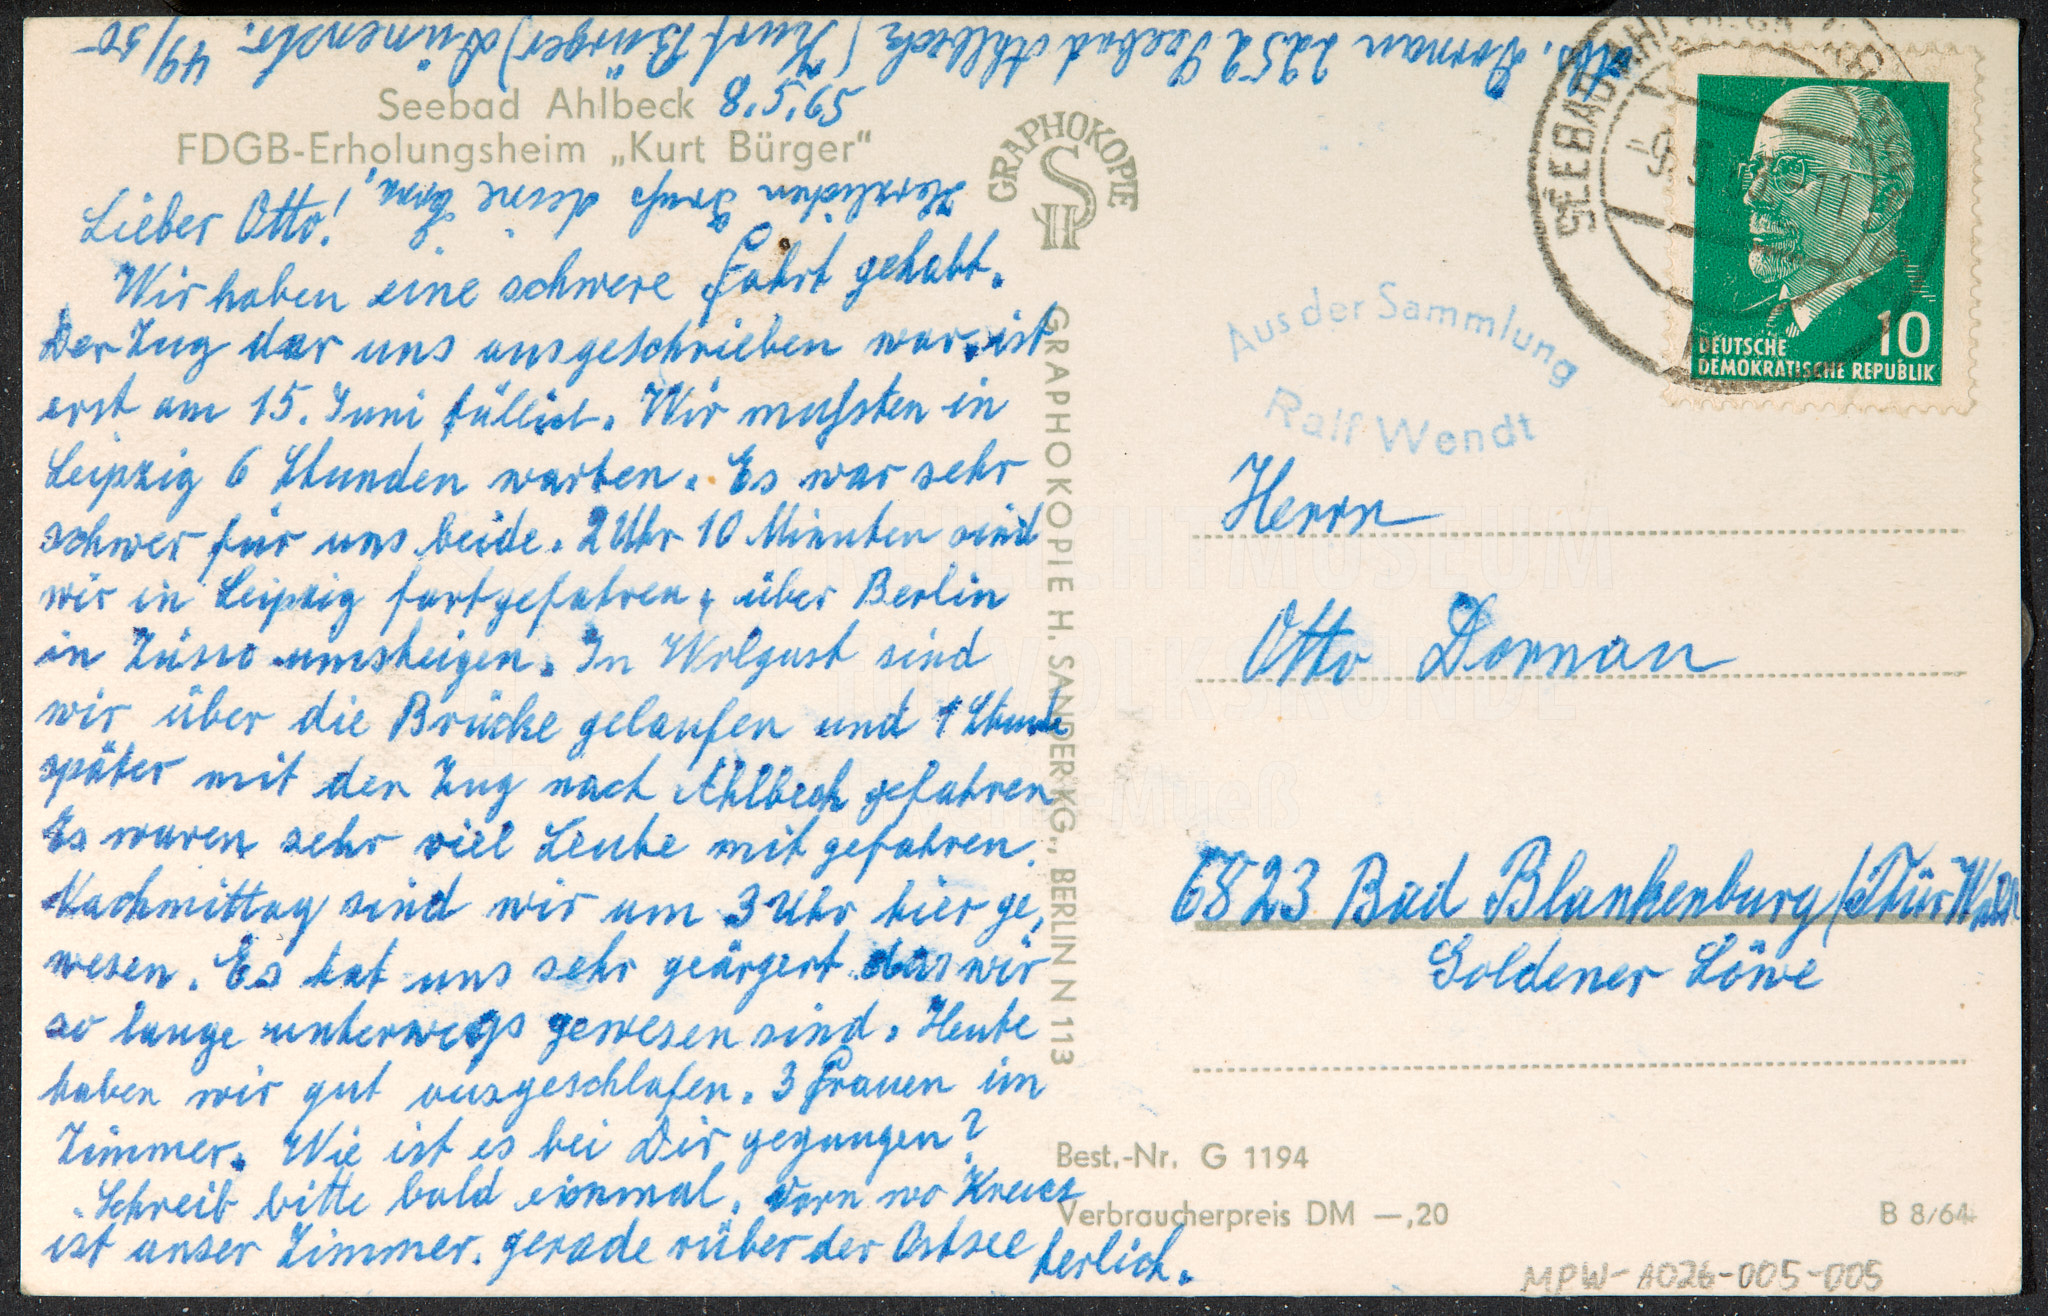 Abs. Dornan 2252 Seebad Ahlbeck (Kurt Bürger) Dünenstr. 49/50
Seebad Ahlbeck 8.5.65
FDGB-Erholungsheim „Kurt Bürger“
Herzlichen Gruß deine
Lieber Otto!
Wir haben eine schwere Fahrt gehabt.
Der Zug der uns ausgeschrieben war, ist
erst am 15. Juni fällich. Wir mußsten in
Leipzig 6 Stunden warten. Es war sehr
schwer für uns beide. 2 Uhr 10 Minuten sind
wir in Leipzig fortgefahren, über Berlin
in Züsso umsteigen. In Wolgast sind
wir über die Brücke gelaufen und 1 Stunde
später mit den Zug nach Ahlbeck gefahren
Es waren sehr viel Leute mit gefahren.
Nachmittag sind wir um 3 Uhr hier ge,
wesen. Es hat uns sehr geärgert das wir
so lange unterwegs gewesen sind. Heute
haben wir gut ausgeschlafen. 3 Frauen im
Zimmer. Wie ist es bei Dir gegangen?
Schreib bitte bald einmal. vorn wo Kreuz
ist unser Zimmer. gerade rüber der Ostsee herlich.
GRAPHOKOPIE
H S
GRAPHOKOPIE H. SANDER KG., BERLIN N 113
SEEBAD AHLBECK
9.5.65-11
DEUTSCHE
DEMOKRATISCHE REPUBLIK
10
Aus der Sammlung
Ralf Wendt
FREILICHTMUSEUM
FÜR VOLKSKUNDE
Schwerin-Mueß
Herrn
Otto Dornan
6823 Bad Blankenburg/Thür Wald
Goldener Löwe
Best.-Nr. G 1194
Verbraucherpreis DM —,20
B 8/64
MPW-A026-005-005